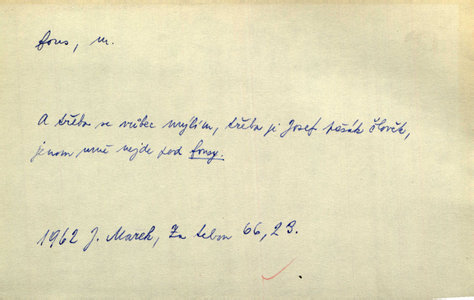 fous, m.
A třeba se vůbec mýlím, třeba je Josef správ člověk,
jenom mně nejde pod fousy.
1962 J. Marek, Za tebou 66, 23.